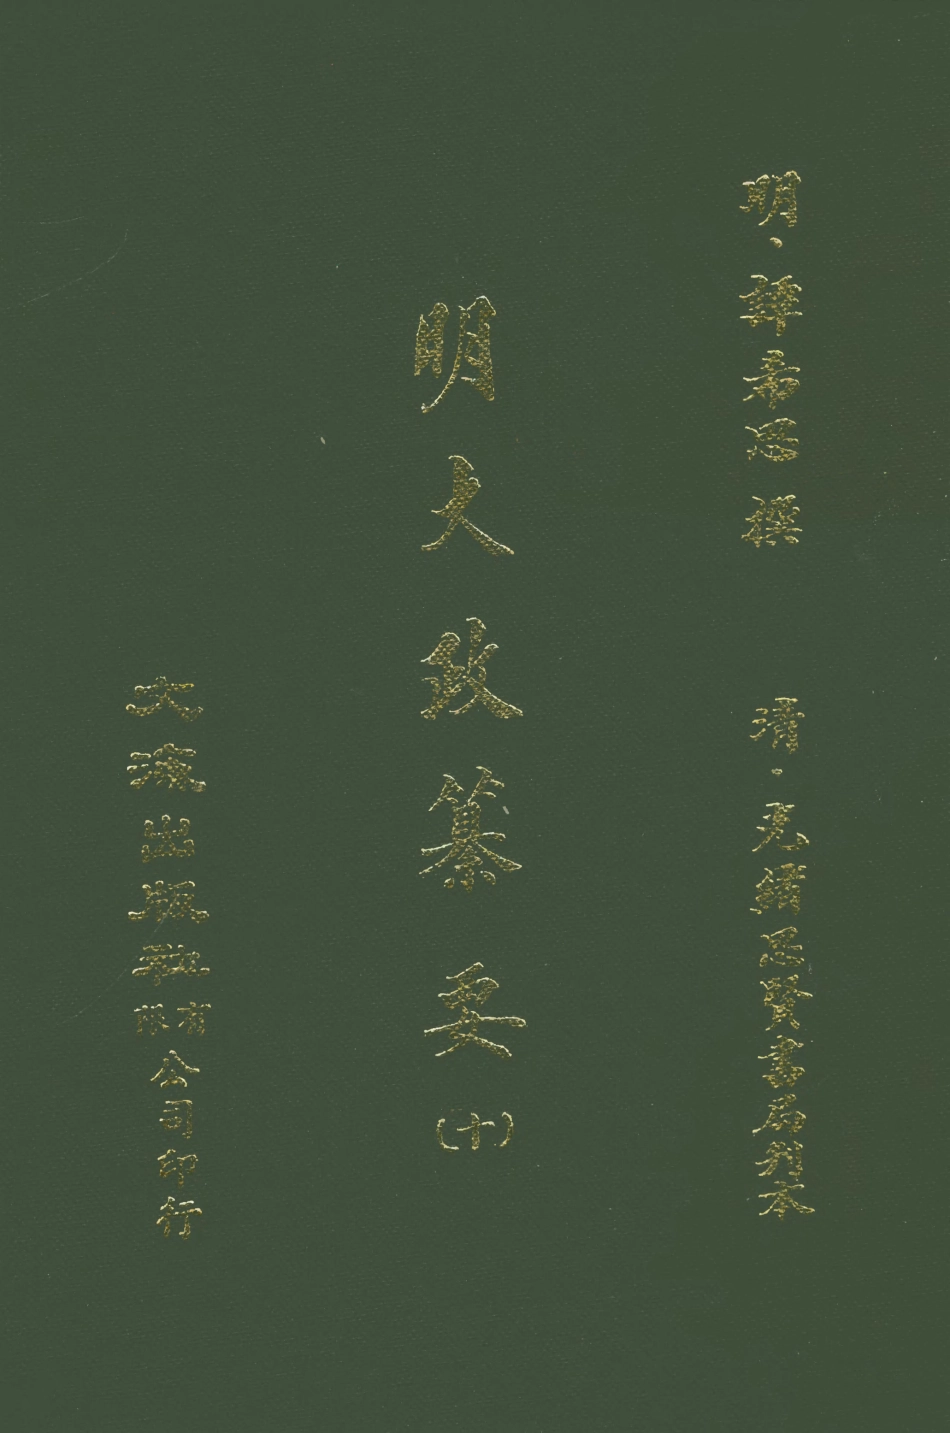 明・譚希思 撰　　清・光緒思賢書局刊本
明大政纂要(十)
文海出版社有限公司印行